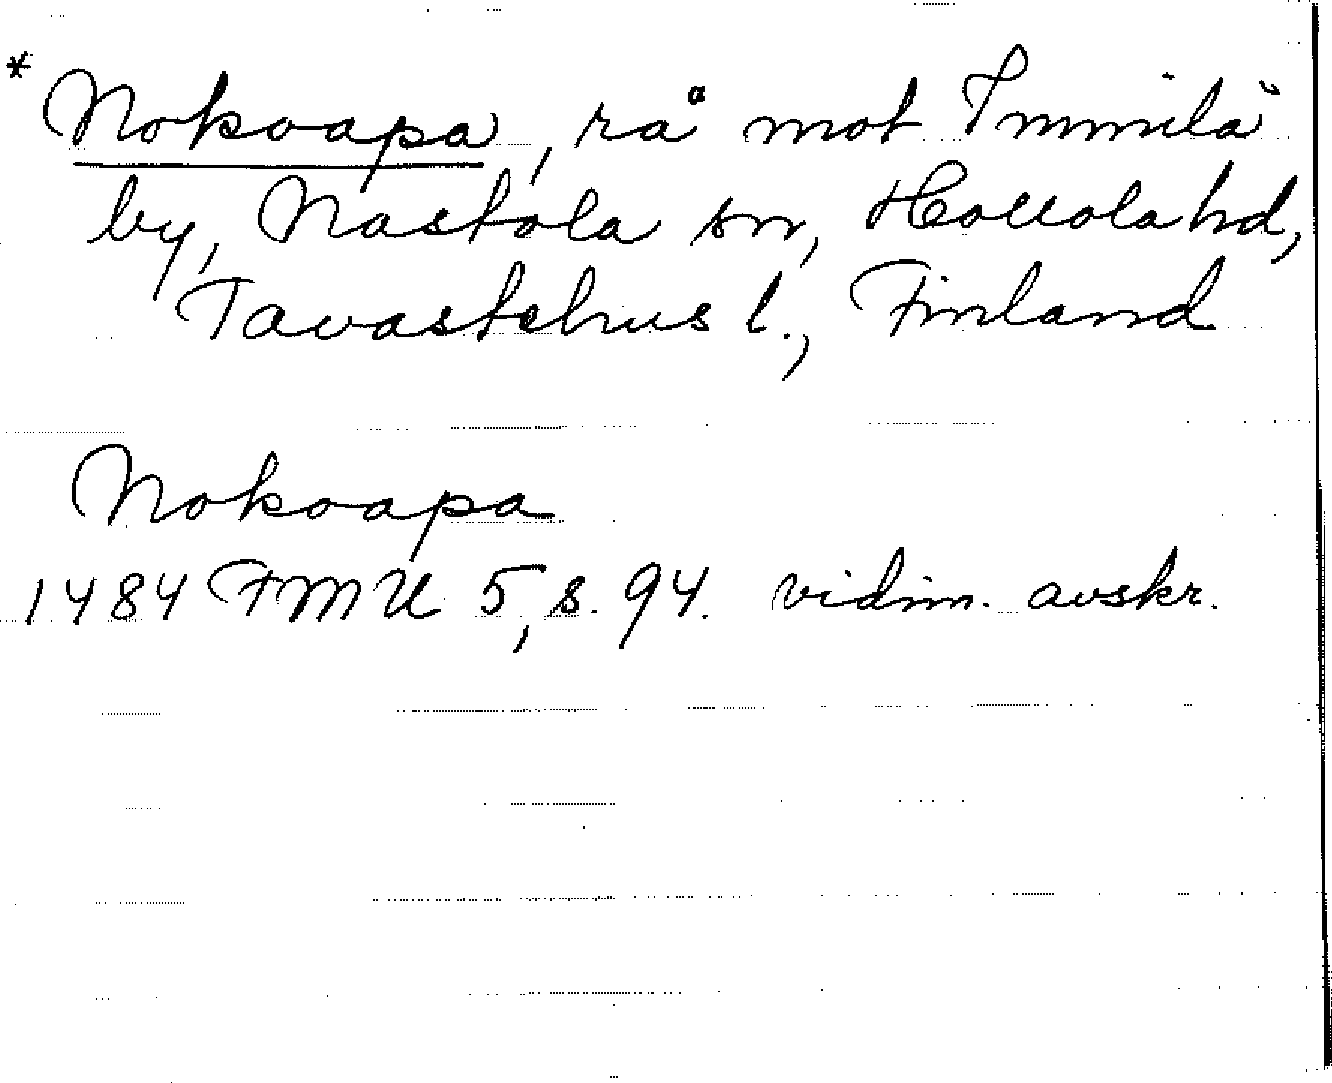 * Nokoapa, rå mot Immilä
by, Nastola sn, Hollola hd,
Tavastehus l., Finland
Nokoapa
1484 FMU 5, s. 94. vidim. avskr.